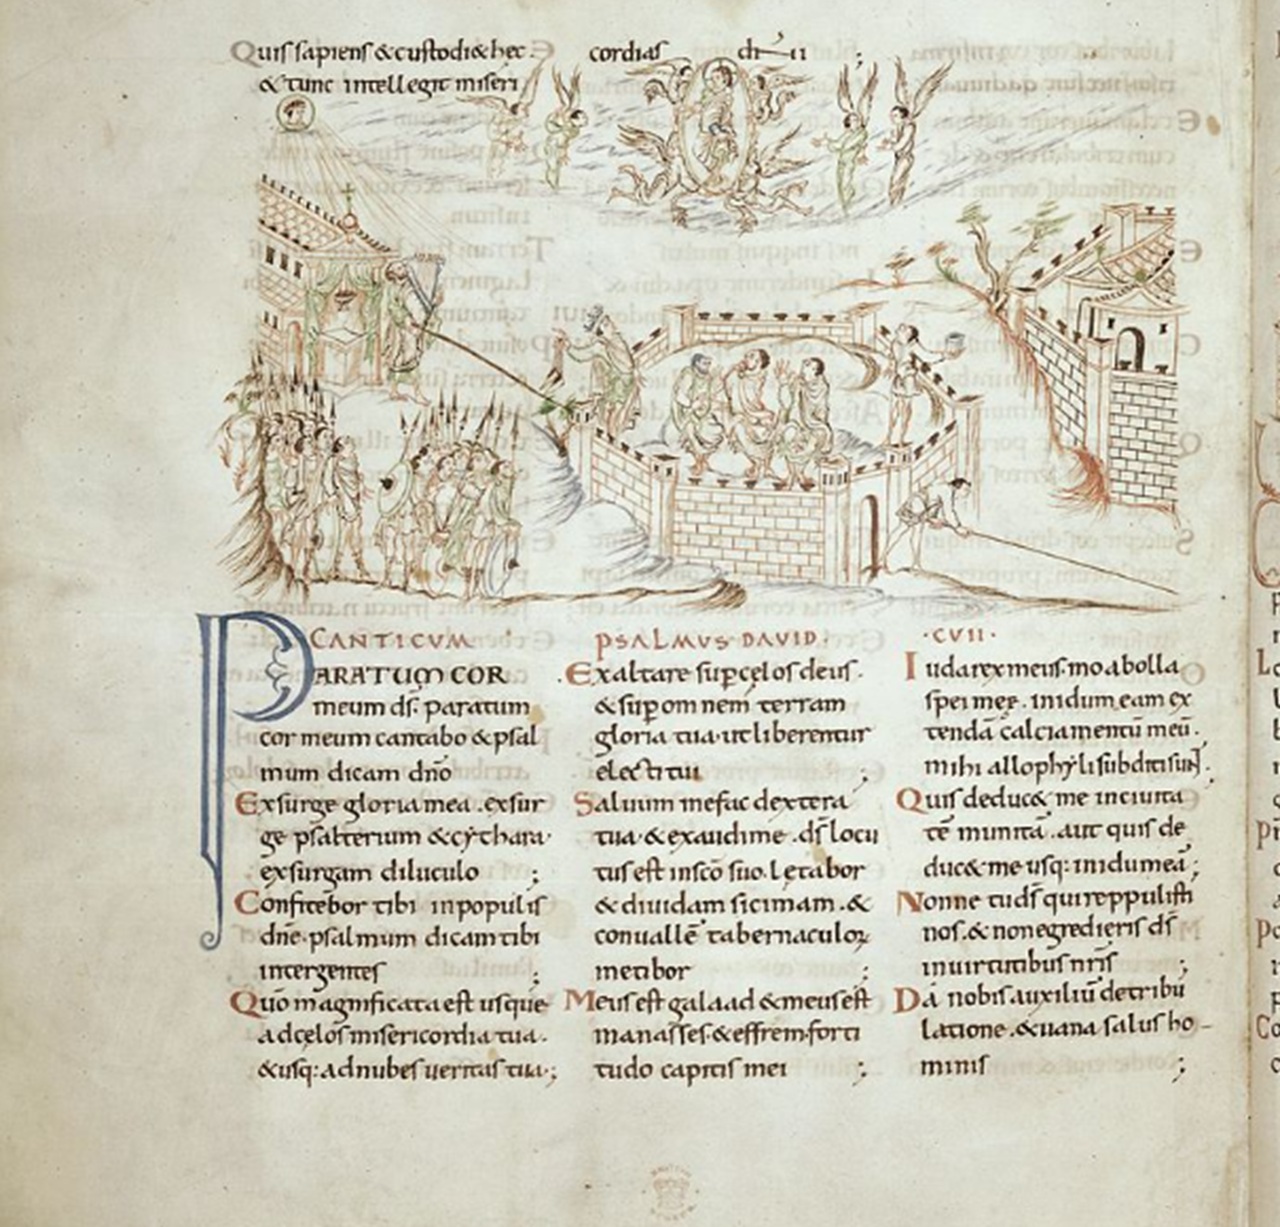 Quis sapiens & custodi& hec.
& tunc intellegit miseri
cordias dni ;
CANTICUM
PARATUM COR
meum ds. paratum
cor meum cantabo & psal
mum dicam dno
Exsurge gloria mea . exsur
ge psalterium & cythara.
exsurgam diluculo ;
Confitebor tibi in populis
dne. psalmum dicam tibi
inter gentes ;
Quo magnificata est usque
ad celos misericordia tua.
& usq: ad nubes ueritas tua. ;
PSALMUS DAVID.
Exaltare sup celos deus.
& sup omnem terram
gloria tua. ut liberentur
electi tui ;
Saluum me fac dextera
tua. & exaudi me . ds locu
tus est in sco suo. Letabor
& diuidam sicimam . &
conualle tabernaculoꝝ
metibor ;
Meus est galaad & meus est
manasses. & effrem. forti
tudo capitis mei ;
·CVII·
Iuda rex meus. moab olla
spei meę . in idumeam ex
tendā calciamentū meū .
mihi allophyli subditi sunt.
Quis deduc& me in ciuita
tē munitā . aut quis de
duc& me usq: in idumeā ;
Nonne tu ds qui reppulisti
nos. & non egredieris ds
in uirtutibus nris ;
Da nobis auxiliū de tribu
latione . & uana salus ho-
minis ;